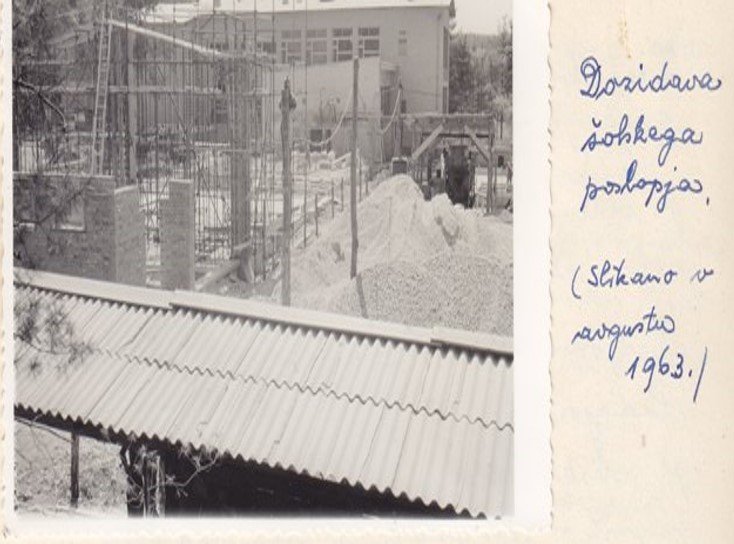 Dozidava
šolskega
poslopja.
(Slikano v
avgustu
1963.)